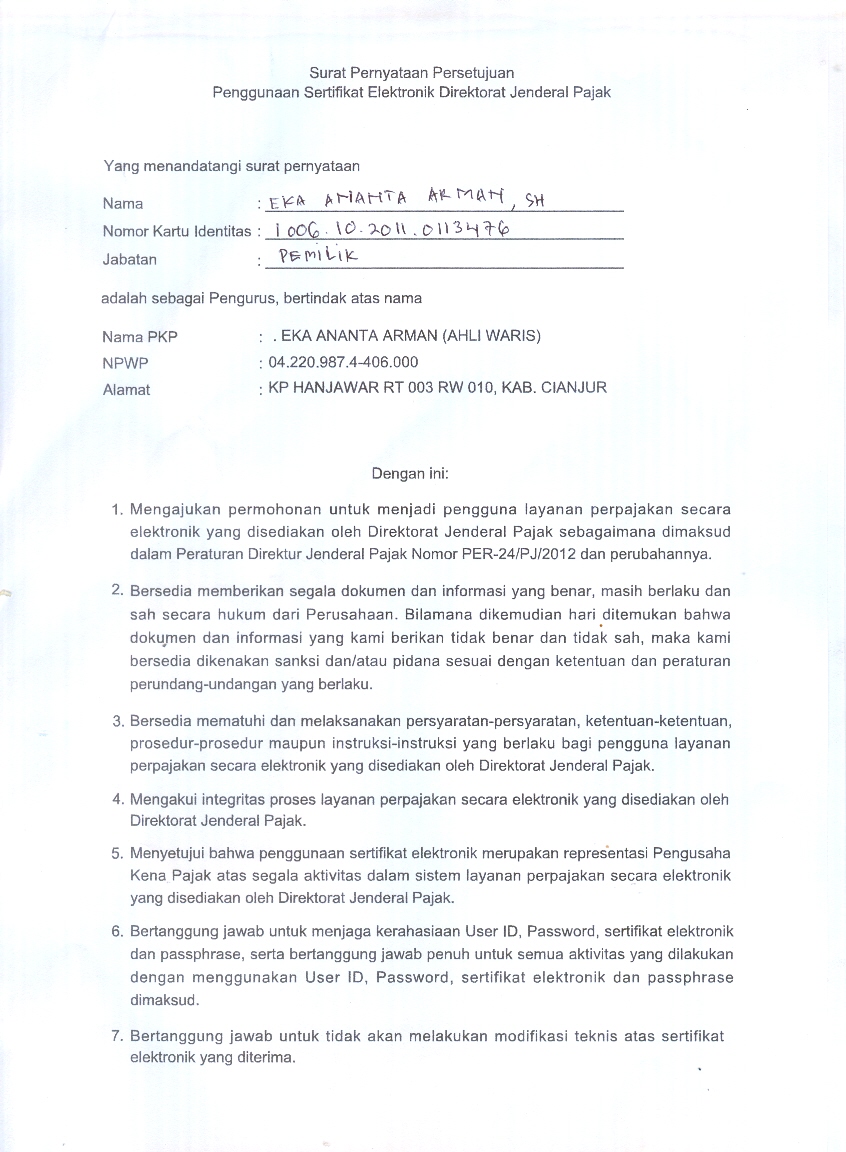 Surat Pernyataan Persetujuan
Penggunaan Sertifikat Elektronik Direktorat Jenderal Pajak
Yang menandatangi surat pernyataan
Nama : EKA ANANTA ARMAN, SH
Nomor Kartu Identitas : 1006.10.2011.0113476
Jabatan : PEMILIK
adalah sebagai Pengurus, bertindak atas nama
Nama PKP : . EKA ANANTA ARMAN (AHLI WARIS)
NPWP : 04.220.987.4-406.000
Alamat : KP HANJAWAR RT 003 RW 010, KAB. CIANJUR
Dengan ini:
1. Mengajukan permohonan untuk menjadi pengguna layanan perpajakan secara
elektronik yang disediakan oleh Direktorat Jenderal Pajak sebagaimana dimaksud
dalam Peraturan Direktur Jenderal Pajak Nomor PER-24/PJ/2012 dan perubahannya.
2. Bersedia memberikan segala dokumen dan informasi yang benar, masih berlaku dan
sah secara hukum dari Perusahaan. Bilamana dikemudian hari ditemukan bahwa
dokumen dan informasi yang kami berikan tidak benar dan tidak sah, maka kami
bersedia dikenakan sanksi dan/atau pidana sesuai dengan ketentuan dan peraturan
perundang-undangan yang berlaku.
3. Bersedia mematuhi dan melaksanakan persyaratan-persyaratan, ketentuan-ketentuan,
prosedur-prosedur maupun instruksi-instruksi yang berlaku bagi pengguna layanan
perpajakan secara elektronik yang disediakan oleh Direktorat Jenderal Pajak.
4. Mengakui integritas proses layanan perpajakan secara elektronik yang disediakan oleh
Direktorat Jenderal Pajak.
5. Menyetujui bahwa penggunaan sertifikat elektronik merupakan representasi Pengusaha
Kena Pajak atas segala aktivitas dalam sistem layanan perpajakan secara elektronik
yang disediakan oleh Direktorat Jenderal Pajak.
6. Bertanggung jawab untuk menjaga kerahasiaan User ID, Password, sertifikat elektronik
dan passphrase, serta bertanggung jawab penuh untuk semua aktivitas yang dilakukan
dengan menggunakan User ID, Password, sertifikat elektronik dan passphrase
dimaksud.
7. Bertanggung jawab untuk tidak akan melakukan modifikasi teknis atas sertifikat
elektronik yang diterima.